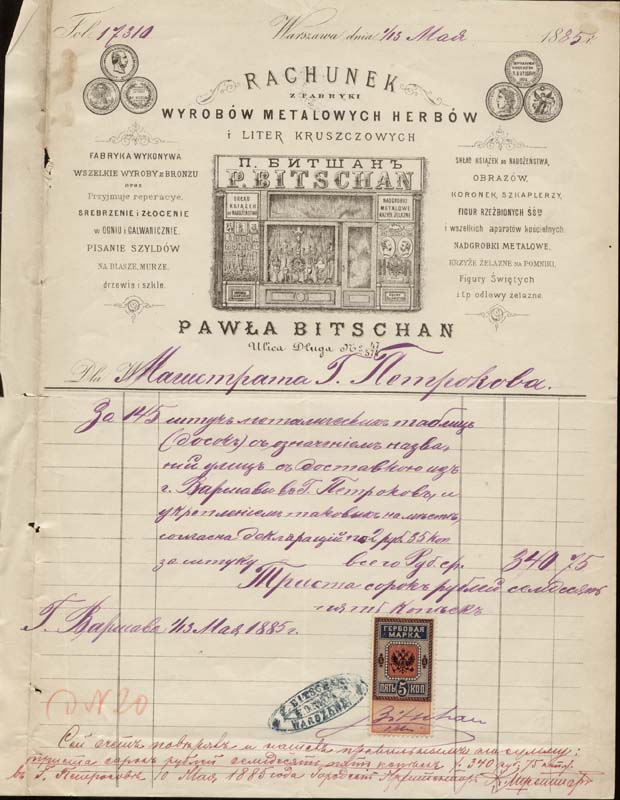 Fol. 17310 Warszawa dnia 1/13 Мая 1885 г.
RACHUNEK
Z FABRYKI
WYROBÓW METALOWYCH HERBÓW
i LITER KRUSZCZOWYCH
FABRYKA WYKONYWA
WSZELKIE WYROBY z BRONZU
oraz
Przyjmuje reperacye,
SREBRZENIE i ZŁOCENIE
w OGNIU i GALWANICZNIE.
PISANIE SZYLDÓW
NA BLASZE, MURZE,
drzewie i szkle.
П. БИТШАНЪ
P. BITSCHAN
SKŁAD
KSIĄŻEK
do NABOŻEŃSTWA
NADGROBKI
METALOWE
SKŁAD KSIĄŻEK do NABOŻEŃSTWA,
OBRAZÓW,
KORONEK, SZKAPLERZY,
FIGUR RZEŹBIONYCH ŚŚtych
i wszelkich aparatów kościelnych.
NADGROBKI METALOWE,
KRZYŻE ŻELAZNE na POMNIKI,
Figury Świętych
i t.p. odlewy żelazne.
PAWŁA BITSCHAN
Ulica Długa No
Dla W Магистрата Г. Петрокова.
За 145 штукъ металическихъ таблицъ
(досокъ) съ означеніемъ назва-
ній улицъ съ доставкою изъ
г. Варшавы въ Г. Петроковъ, и
укрепленіемъ таковыхъ на мѣстѣ,
согласна деклараціи по 2 руб. 35 коп
за штуку всего Руб. ср. 340 75
Триста сорокъ рублей семдесять
пять копѣекъ
Г. Варшава 1/13 Мая 1885 г.
ГЕРБОВАЯ
МАРКА.
ПЯТЬ 5 КОП.
P. BITSCHAN
WARSZAWA
Bitschan
D N 20
Сей счетъ повѣрялъ и нашелъ правильнымъ на сумму:
триста сорокъ рублей семдесятъ пять копѣекъ р. 340 коп. 75
въ Г. Петроковѣ 10 Мая 1885 года Городской